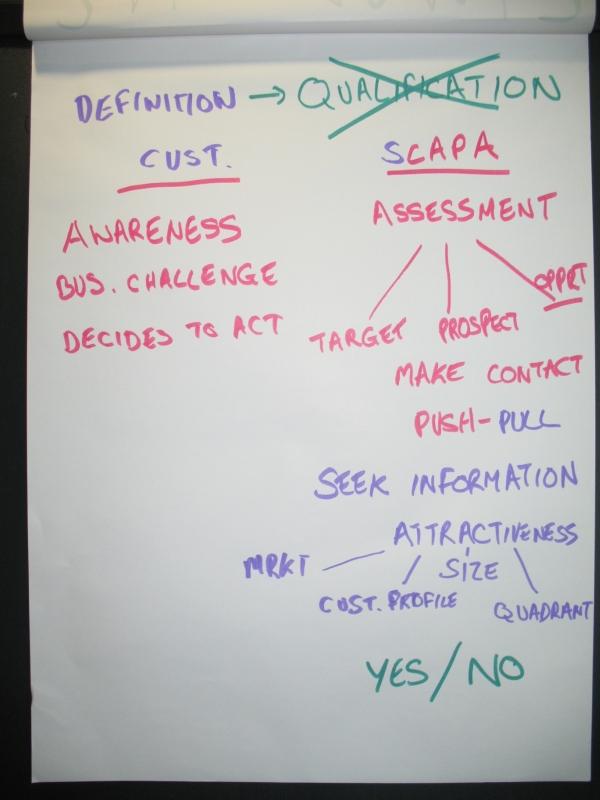 DEFINITION → QUALIFICATION
CUST.
AWARENESS
BUS. CHALLENGE
DECIDES TO ACT
SCAPA
ASSESSMENT
OPPRT
TARGET PROSPECT
MAKE CONTACT
PUSH-PULL
SEEK INFORMATION
ATTRACTIVENESS
MRKT SIZE
CUST. PROFILE QUADRANT
YES/NO